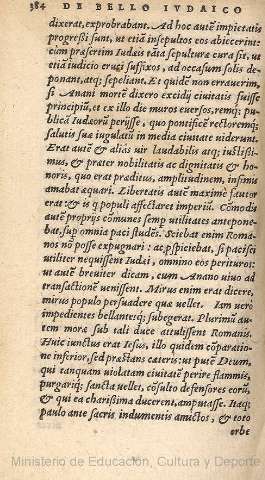 384 DE BELLO IVDAICO
dixerat, exprobrabant. Ad hoc autē impietatis
progreßi sunt, ut etiā insepultos eos abiicerint:
cùm præsertim Iudæis tāta sepulturæ cura sit, ut
etiā iudicio cruci suffixos, ad occasum solis de-
ponant, atq; sepeliant. Et quidē non errauerim,
si Anani mortē dixero excidij ciuitatis fuisse
principiū, et ex illo die muros euersos, remq; pu-
blicā Iudæorū perijsse, quo pontificē rectoremq;
salutis suæ iugulatū in media ciuitate uiderunt.
Erat autē & aliàs uir laudabilis atq; iustissi-
mus, & præter nobilitatis ac dignitatis & ho-
noris, quo erat præditus, amplitudinem, infimis
amabat æquari. Libertatis autē maximè fautor
erat: & is q populi affectaret imperiū. Cōmodis
autē proprijs cōmunes semp utilitates antepone-
bat, sup omnia paci studēs. Sciebat enim Roma-
nos nō posse expugnari: ac pspiciebat, si pacisci
utiliter nequissent Iudæi, omnino eos perituros:
ut autē breuiter dicam, cum Anano uiuo ad
transactionē uenissent. Mirus enim erat dicere,
mirus populo persuadere quæ uellet. Iam uerò
impedientes bellanteq; subegerat. Plurimū au-
tem moræ sub tali duce attulissent Romanis.
Huic iunctus erat Iesus, illo quidem cōparatio-
ne inferior, sed præstans cæteris: ut putē Deum,
qui tanquam uiolatam ciuitatē perire flammis,
purgariq; sancta uellet, cōsultò defensores eorū,
& qui ea charißima ducerent, amputasse. Itaq;
paulo ante sacris indumentis amictos, & toto
orbe
Ministerio de Educación, Cultura y Deporte